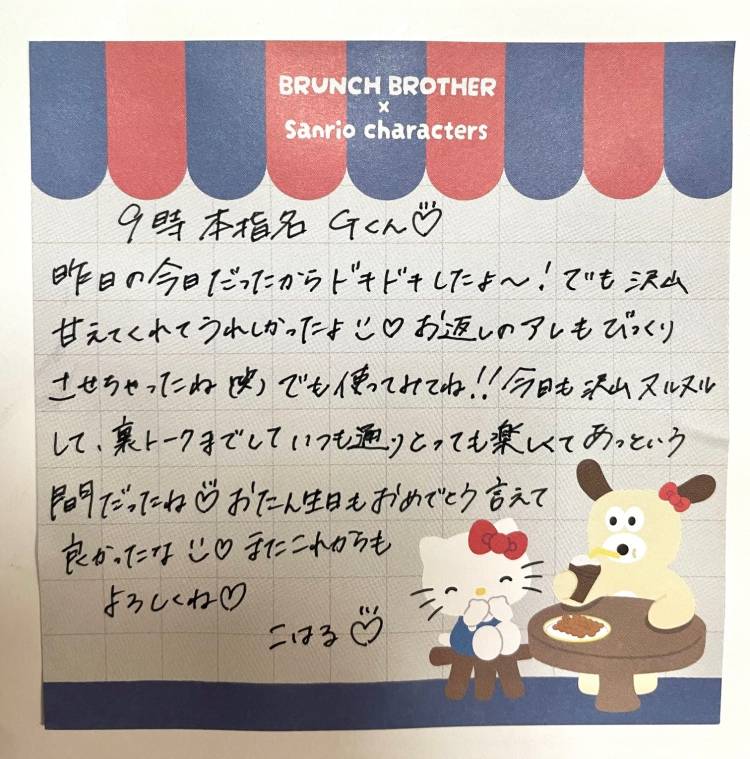 BRUNCH BROTHER
×
Sanrio characters
9時 本指名 Gくん♡
昨日の今日だったからドキドキしたよ〜!でも沢山
甘えてくれてうれしかったよ☺♡ お返しのアレもびっくり
させちゃったね(笑)でも使ってみてね!!今日も沢山ヌルヌル
して、裏トークまでしていつも通りとっても楽しくてあっという
間だったね♡ おたん生日もおめでとう言えて
良かったな☺♡ またこれからも
よろしくね♡
こはる♡